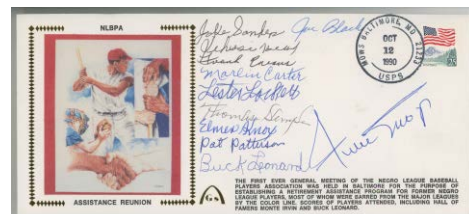 NLBPA
Joe Black
Marlin Carter
Lester Lockett
Elmer Knox
Pat Patterson
Buck Leonard
MOWS BALTIMORE, MD 21233
OCT
12
1990
USPS
ASSISTANCE REUNION
THE FIRST EVER GENERAL MEETING OF THE NEGRO LEAGUE BASEBALL
PLAYERS ASSOCIATION WAS HELD IN BALTIMORE FOR THE PURPOSE OF
ESTABLISHING A RETIREMENT ASSISTANCE PROGRAM FOR FORMER NEGRO
LEAGUE PLAYERS, MOST OF WHOM WERE BARRED FROM THE MAJOR LEAGUES
BY THE COLOR LINE. SCORES OF PLAYERS ATTENDED, INCLUDING HALL OF
FAMERS MONTE IRVIN AND BUCK LEONARD.